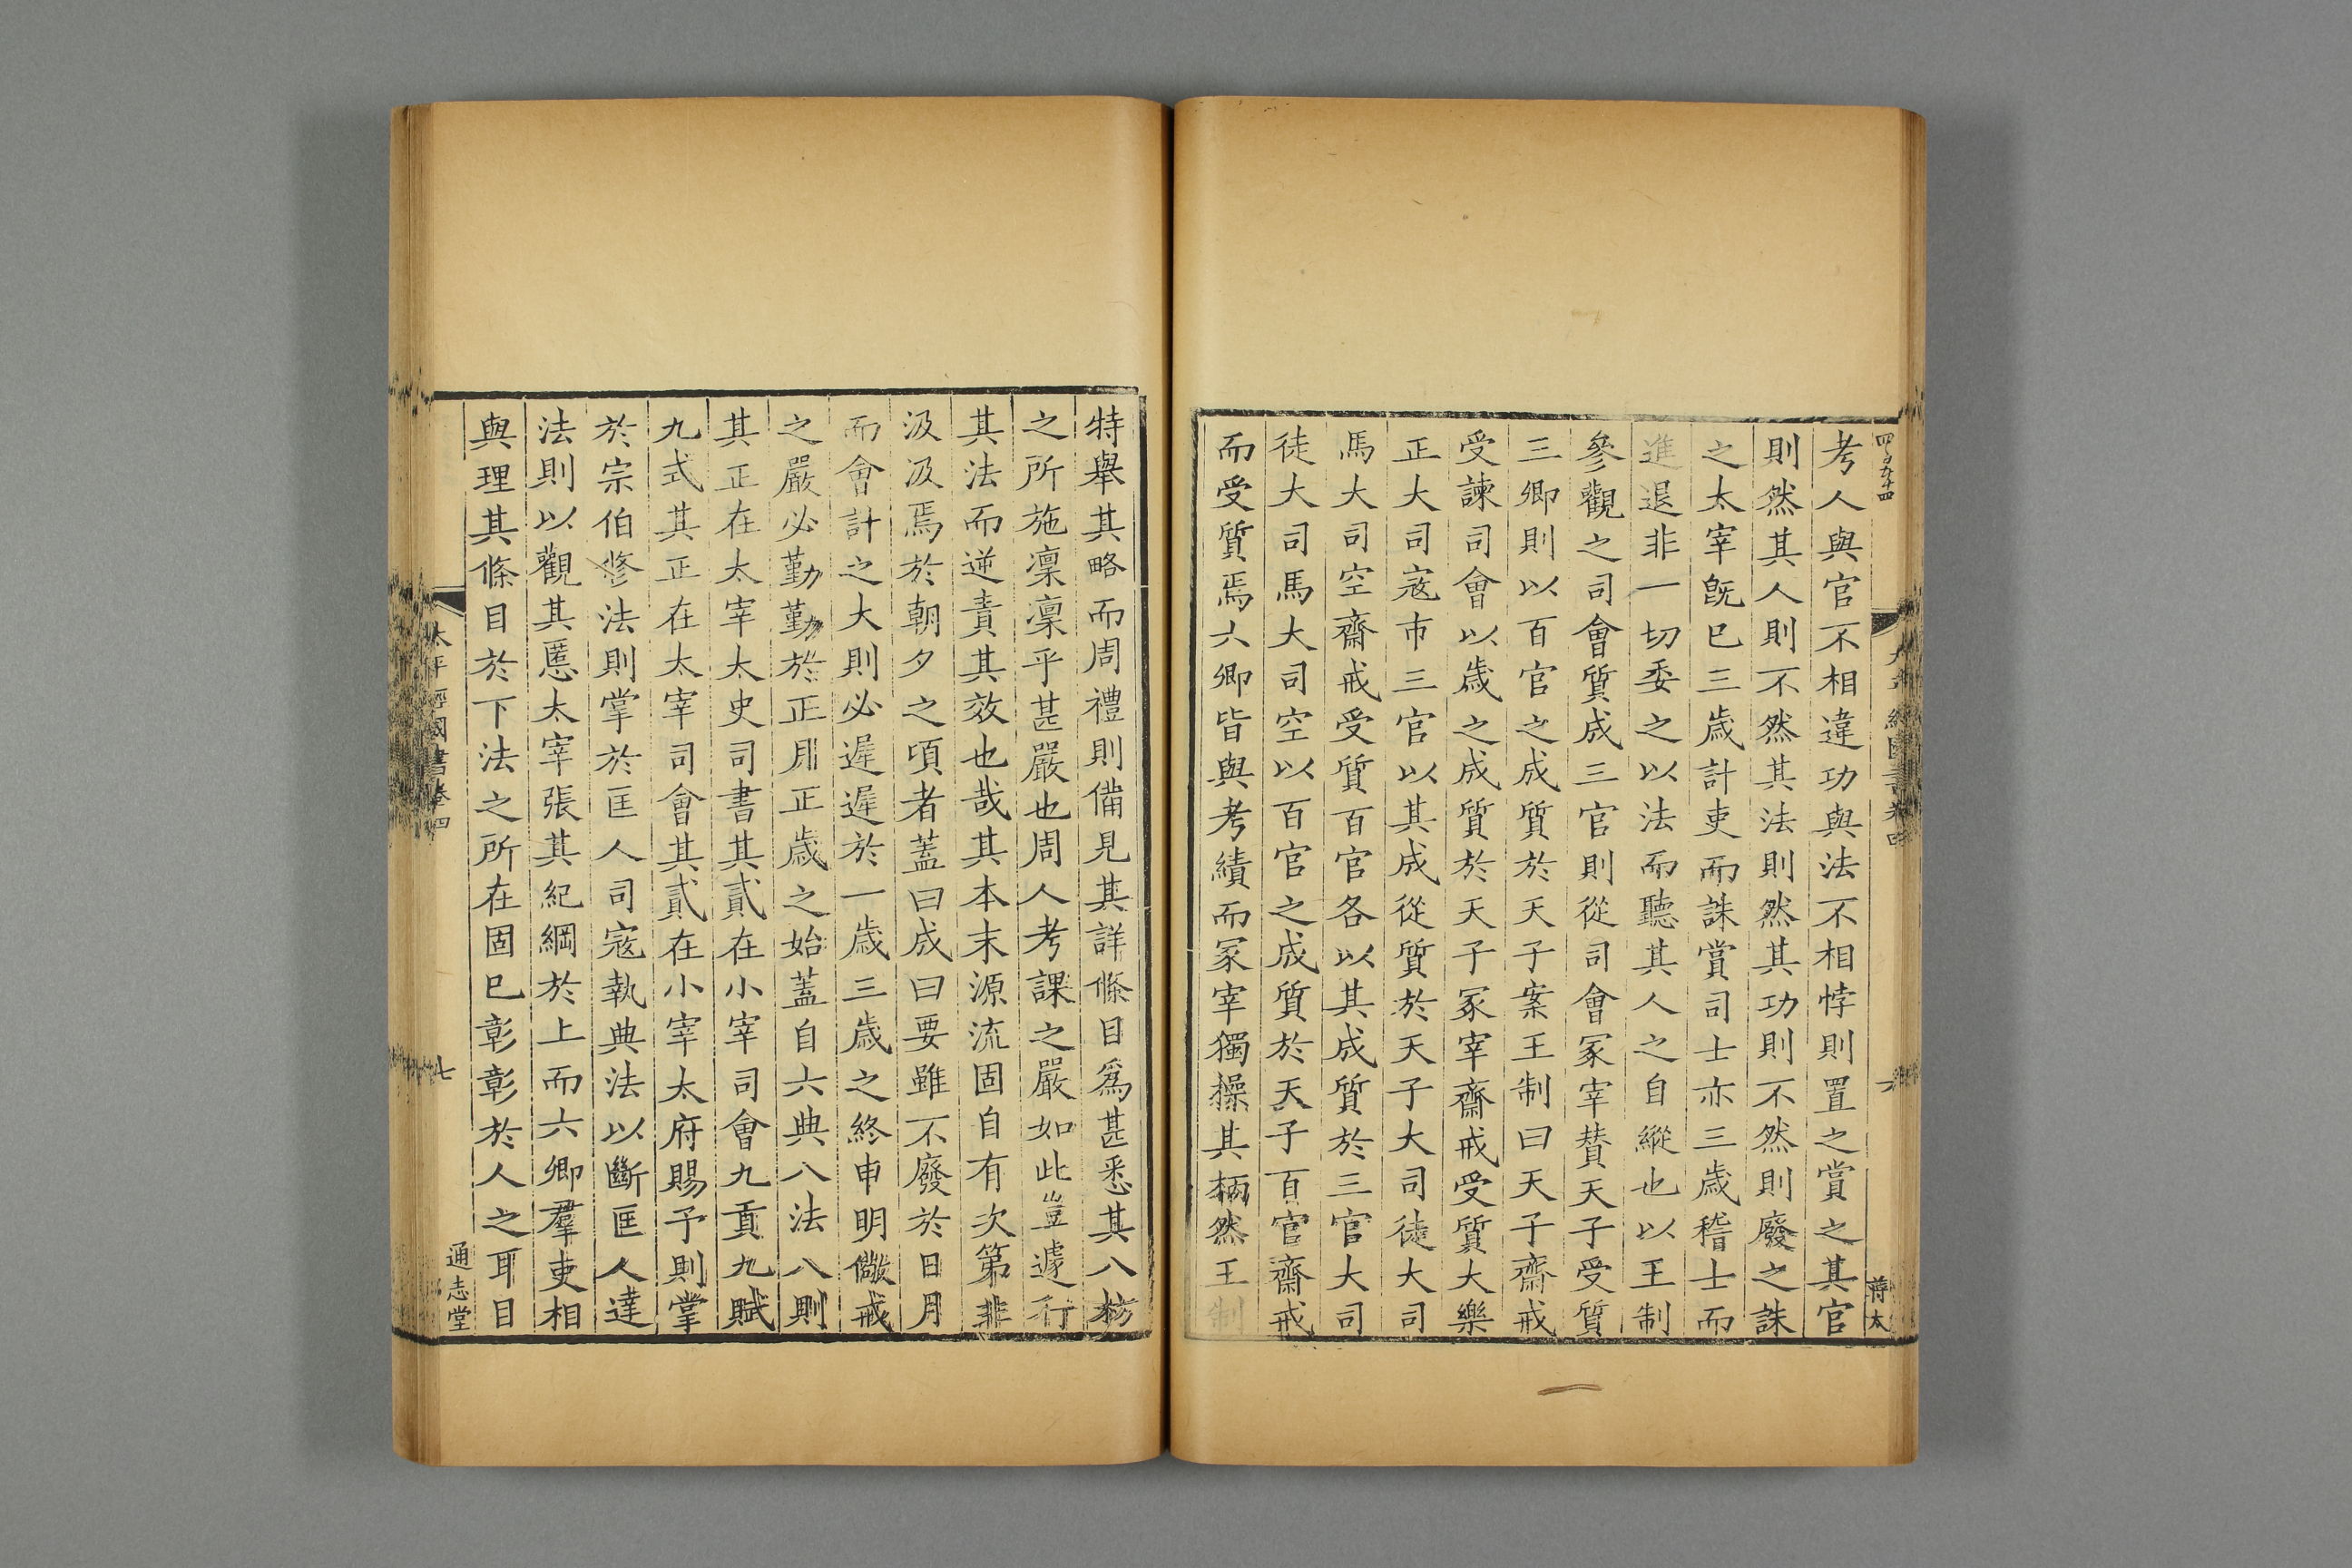 四百五十四
太平經國書卷四
六
蔣太
考人與官不相違功與法不相悖則置之賞之其官
則然其人則不然其法則然其功則不然則廢之誅
之太宰旣已三歲計吏而誅賞司士亦三歲稽士而
進退非一切委之以法而聽其人之自縱也以王制
參觀之司會質成三官則從司會冢宰贊天子受質
三卿則以百官之成質於天子案王制曰天子齋戒
受諫司會以歲之成質於天子冢宰齋戒受質大樂
正大司寇市三官以其成從質於天子大司徒大司
馬大司空齋戒受質百官各以其成質於三官大司
徒大司馬大司空以百官之成質於天子百官齋戒
而受質焉六卿皆與考績而冢宰獨操其柄然王制
特舉其略而周禮則備見其詳條目爲甚悉其八枋
之所施凜凜乎甚嚴也周人考課之嚴如此豈遽行
其法而逆責其效也哉其本末源流固自有次第非
汲汲焉於朝夕之頃者蓋曰成曰要雖不廢於日月
而會計之大則必遲遲於一歲三歲之終申明儆戒
之嚴必勤勤於正月正歲之始蓋自六典八法八則
其正在太宰太史司書其貳在小宰司會九貢九賦
九式其正在太宰司會其貳在小宰太府賜予則掌
於宗伯修法則掌於匡人司寇執典法以斷匡人達
法則以觀其慝太宰張其紀綱於上而六卿羣吏相
與理其條目於下法之所在固已彰彰於人之耳目
太平經國書卷四
七
通志堂